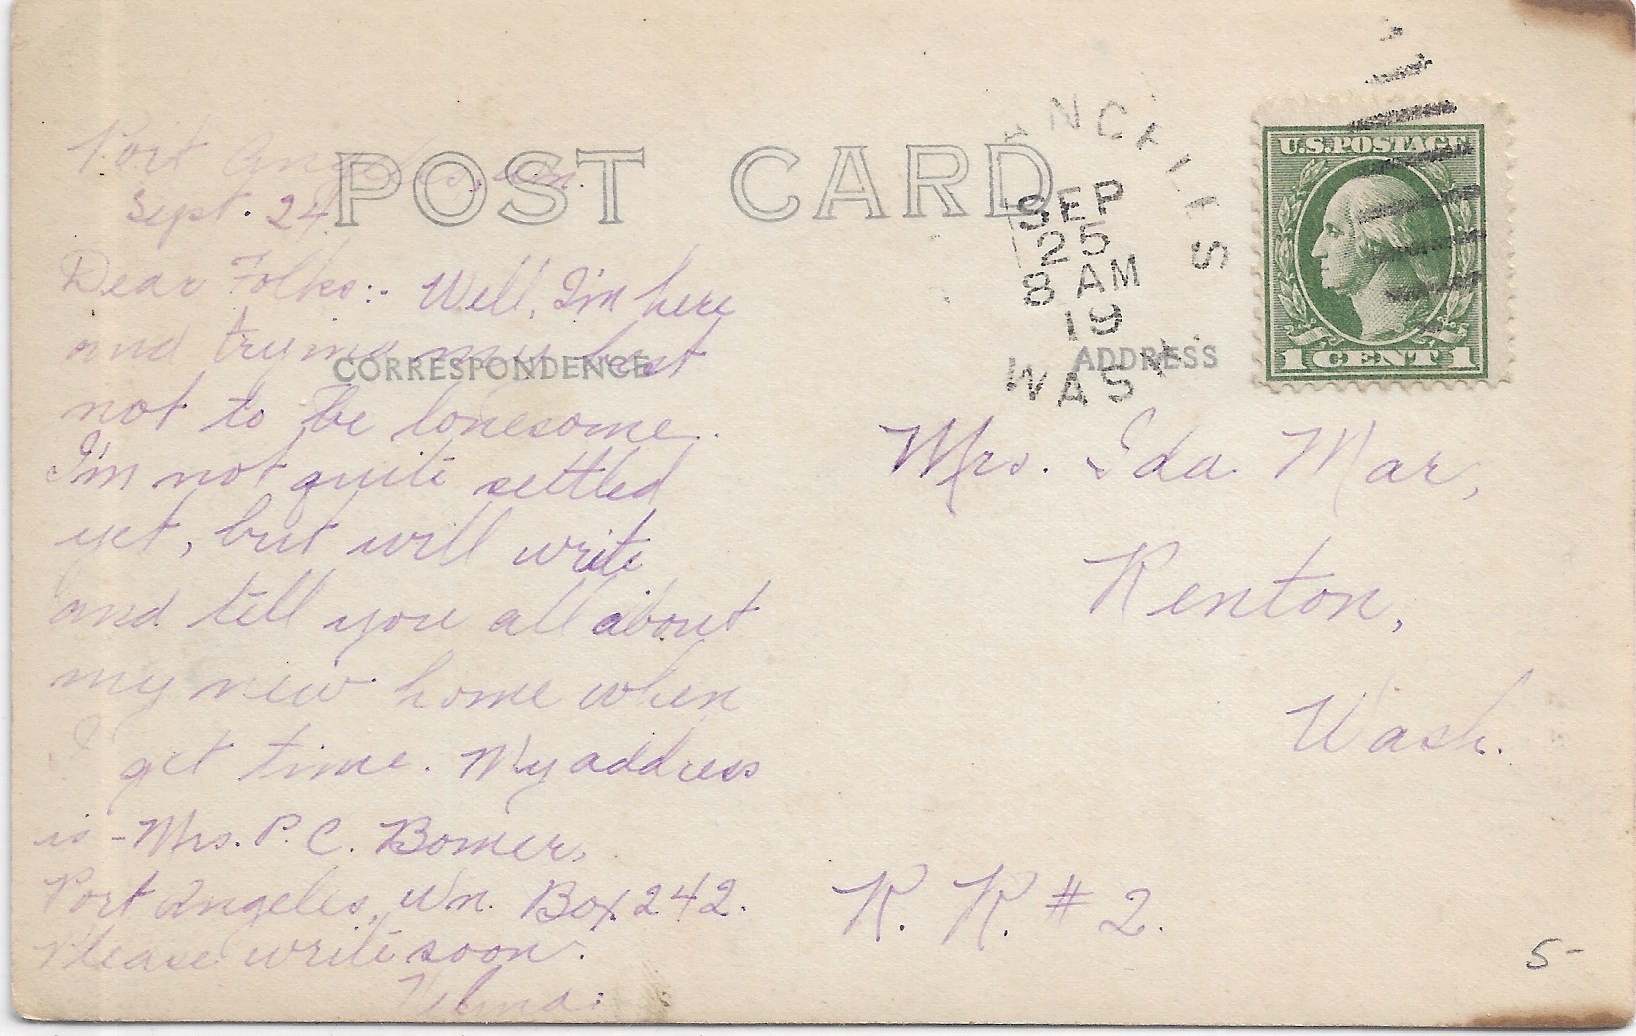 POST CARD
Port Angeles, Wn.
Sept. 24
Dear Folks:- Well, I'm here
and trying my best
not to be lonesome.
I'm not quite settled
yet, but will write
and tell you all about
my new home when
I get time. My address
is - Mrs. P. C. Bomer,
Port Angeles, Wn. Box 242.
Please write soon.
Velma.
CORRESPONDENCE
ANGELES
SEP
25
8 AM
19
WASH.
U.S. POSTAGE
1 CENT 1
ADDRESS
Mrs. Ida Mar,
Renton,
Wash.
R. R. # 2.
5-